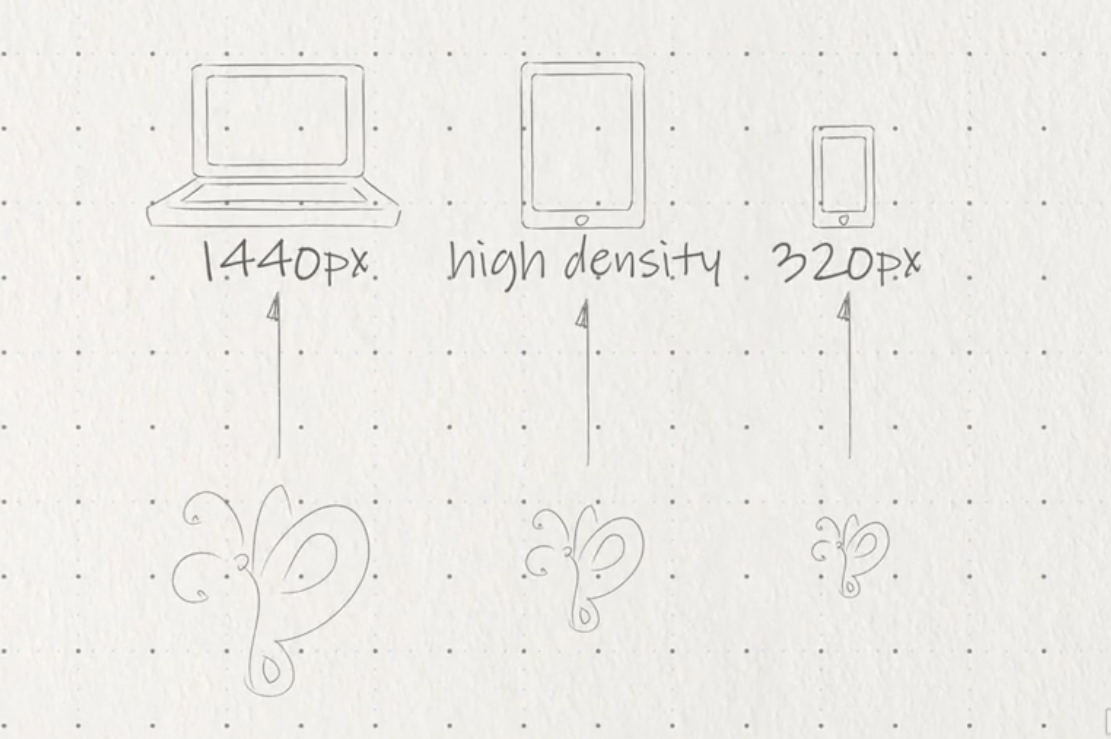 1440px
high density
320px